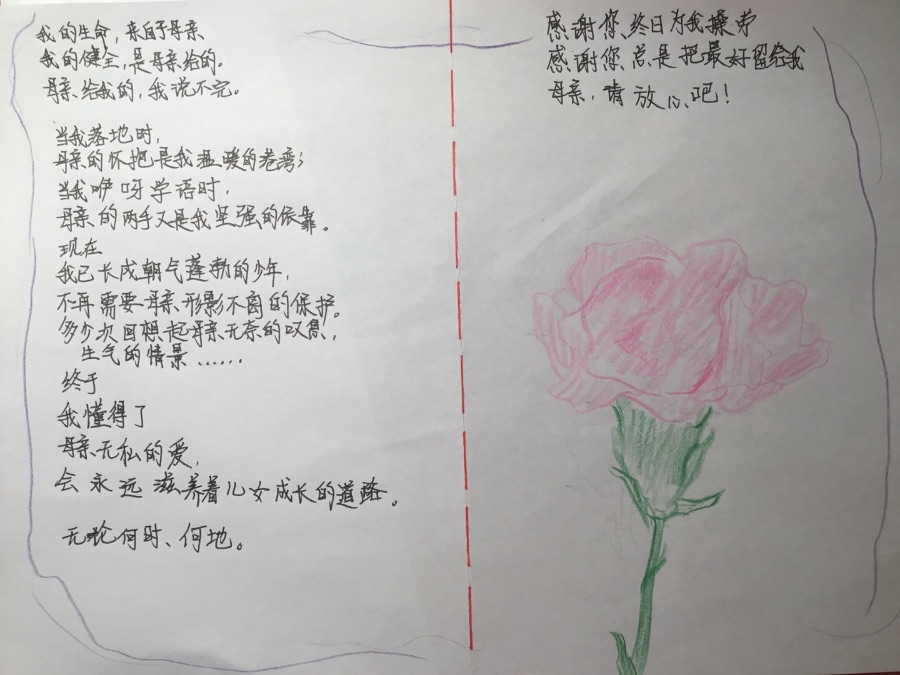 我的生命，来自于母亲
我的健全，是母亲给的。
母亲给我的，我说不完。
当我落地时，
母亲的怀抱是我温暖的港湾；
当我咿呀学语时，
母亲的两手又是我坚强的依靠。
现在
我已长成朝气蓬勃的少年，
不再需要母亲形影不离的保护。
多少次回想起母亲无奈的叹息，
生气的情景……
终于
我懂得了
母亲无私的爱，
会永远滋养着儿女成长的道路。
无论何时、何地。
感谢您、终日为我操劳
感谢您、总是把最好留给我
母亲，请放心吧！